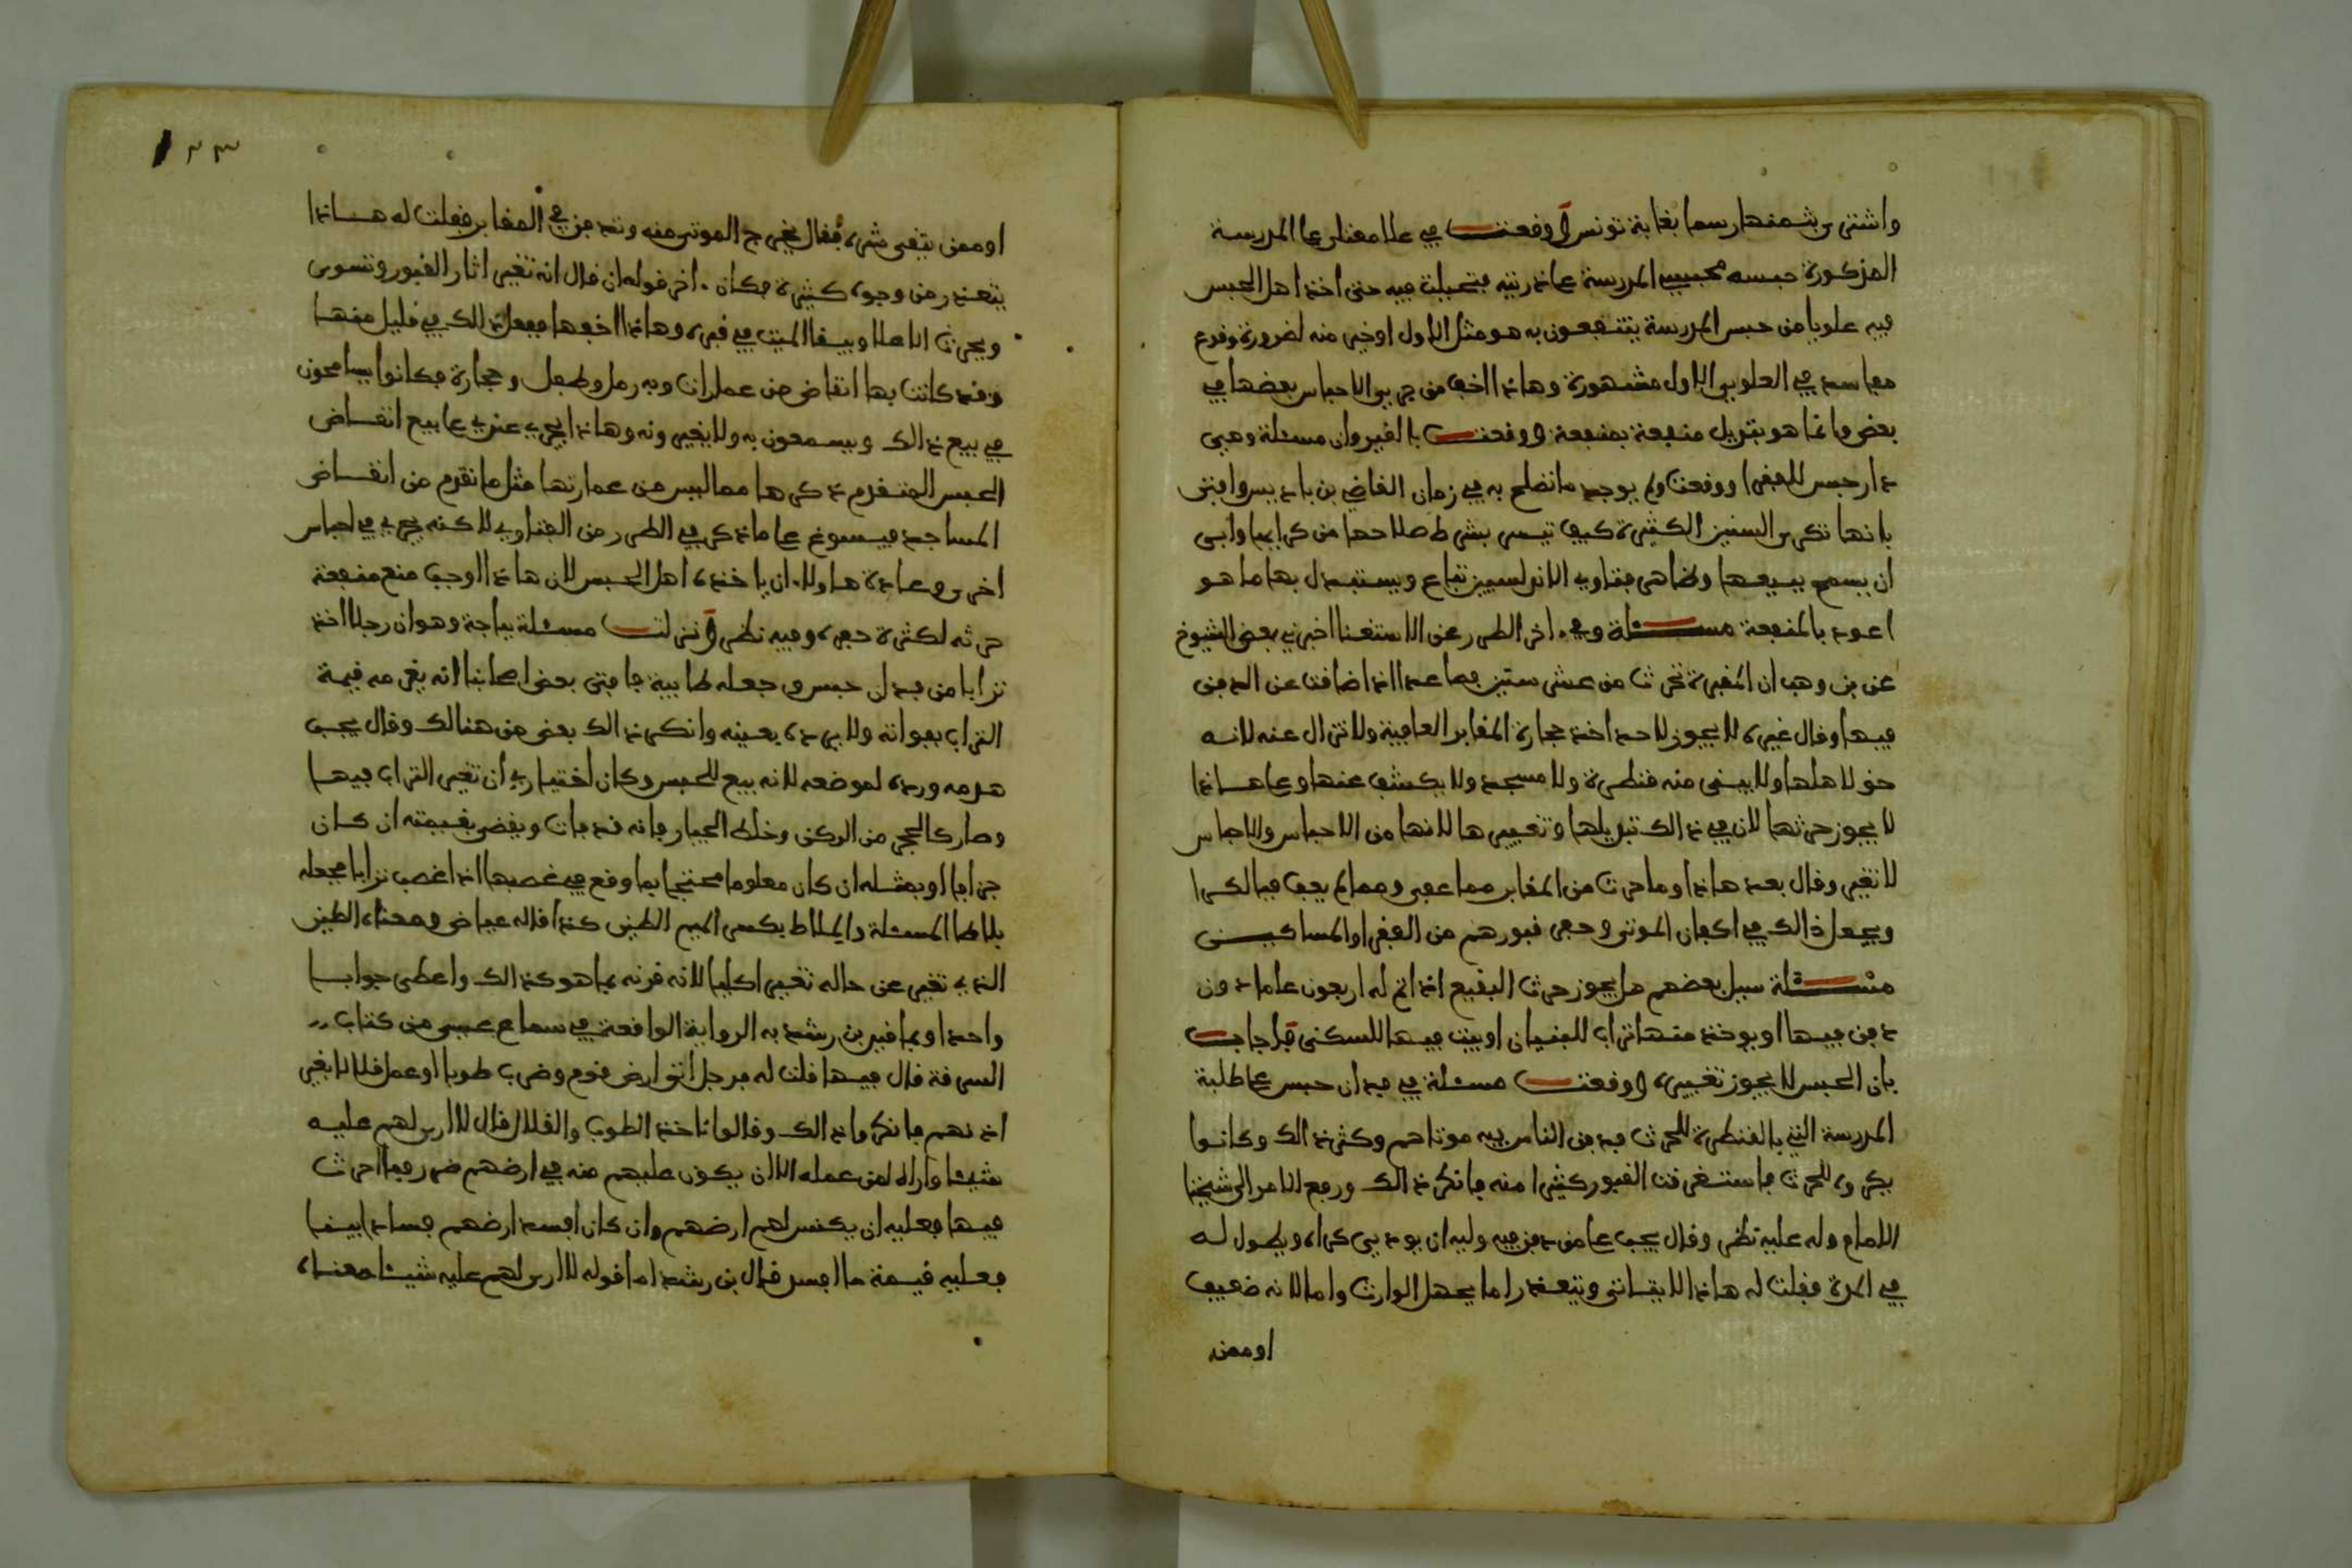 واشترى بثمنها رسما بغابة تونس ووقعت في علا مغلى على المدرسة
المذكورة حبسه محبس المدرسة على تربته فتحيلت فيه حتى اخذ اهل الحبس
فيه علويا من حبس المدرسة ينتفعون به هو مثل الاول او خير منه لضرورة وقوع
مفاسد في العلوي الاول مشهورة وهاذا اخف من جري الاحباس بعضها في
بعض وانما هو بتبديل منفعة بمنفعة ووقعت بالقيروان مسئلة وهي
دار حبس للفقرا ووقعت ولم يوجد ما تصلح به في زمان القاضي بن باديس وافتى
بانها تكرى السنين الكثيرة كيف تيسر بشرط صلاحها من كرايها وابى
ان يسمح ببيعها وظاهر فتاوي الاندلسيين تباع ويستبدل بها ما هو
اعود بالمنفعة مسئلة وفي اخر الطرر عن الاستغنا اخبرني بعض الشيوخ
عن بن وهب ان المقبرة تحرث من عشر سنين فصاعدا اذا ضاقت عن الدفن
فيها وقال غيره لا يجوز لاحد اخذ حجارة المقابر العافية ولا تزال عنه لانه
حق لاهلها ولا يبنى منه قنطرة ولا مسجد ولا يكشف عنها وعلى هاذا
لا يجوز حرثها لان في ذالك تبديلها وتغييرها لانها من الاحباس والاحباس
لا تغير وقال بعد هاذا وما حرث من المقابر مما عفى ومما لم يعف فيه الكرا
ويجعل ذالك في اكفان الموتى وحفر قبورهم من الفقرا والمساكين
مسئلة سيل بعضهم هل يجوز حرث البقيع اذا اتم له اربعون عاما دون
دفن فيها او يوخذ منها تراب للبنيان او يبنى فيها للسكنى فاجاب
بان الحبس لا يجوز تغييره ووقعت مسئلة في فدان حبس على طلبة
المدرسة التي بالقنطرة للحرث فدفن الناس فيه موتاهم وكثر ذالك وكانوا
يكروه للحرث فاستغرقت القبور كثيرا منه فانكر ذالك ورفع الامر الى شيخنا
الامام وله عليه نظر وقال يجب على من دفن فيه وليه ان يودي كراه ويطول له
في المدة فقلت له هاذا لا يتاتى ويتعذر اما يجهل الوارث واما لانه ضعيف
او ممن
١٢٣
او ممن يتقى شره فقال يخرج الموتى منه وتدفن في المقابر فقلت له هاذا
يتعذر من وجوه كثيرة فكان اخر قوله ان قال انه تغير اثار القبور وتسوى
ويحرث اعلاه ويبقا الميت في قبره وهاذا اخفها ففعل ذالك في قليل منها
وقد كانت بها انقاض من عمران وبه رمل وطفل وحجارة فكانوا يسامحون
في بيع ذالك ويسمعون به ولا يغيرونه وهاذا يجري عندي على بيع انقاض
الحبس المتقدم ذكرها مما ليس من عمارتها مثل ما تقدم من انقاض
المساجد فيسوغ على ما ذكر في الطرر من الفتاوي لاكنه يجري في احباس
اخر وعادة هاولاء ان ياخذه اهل الحبس لان هاذا اوجب منع منفعة
حرثه لكثرة حفره وفيه نظر ونزلت مسئلة بباجة وهو ان رجلا اخذ
ترابا من فدان حبس وجعله طابية فافتى بعض اصحابنا انه يغرمه قيمة
التراب بفواته ولا يرده بعينه وانكر ذالك بعض من هنالك وقال يجب
هدمه ورده لموضعه لانه بيع للحبس وكان اختياري ان تغير التراب فيها
وصار كالحجر من الركن وخلط الجيار فانه قد فات ويقضى بقيمته ان كان
جزافا او بمثله ان كان معلوما محتجا بما وقع في غصبها اذا غصب ترابا فجعله
بلاطا المسئلة والملاط بكسر الميم الطين كذا قاله عياض ومعناه الطين
الذي تغير عن حاله تغييرا كليا لانه قرنه بما هو كذالك واعطى جوابا
واحدا وبما قيد بن رشد به الرواية الواقعة في سماع عيسى من كتاب
السرقة قال فيها قلت له فرجل اتى ارض قوم وضرب طوبا او عمل قلالا بغير
اذنهم فانكروا ذالك وقالوا ناخذ الطوب والقلال قال لا ارى لهم عليه
شيئا واراه لمن عمله الا ان يكون عليهم منه في ارضهم ضرر فيما احرث
فيها فعليه ان يكنس لهم ارضهم وان كان افسد ارضهم فسادا بينا
فعليه قيمة ما افسد قال بن رشد اما قوله لا ارى لهم عليه شيئا معناه